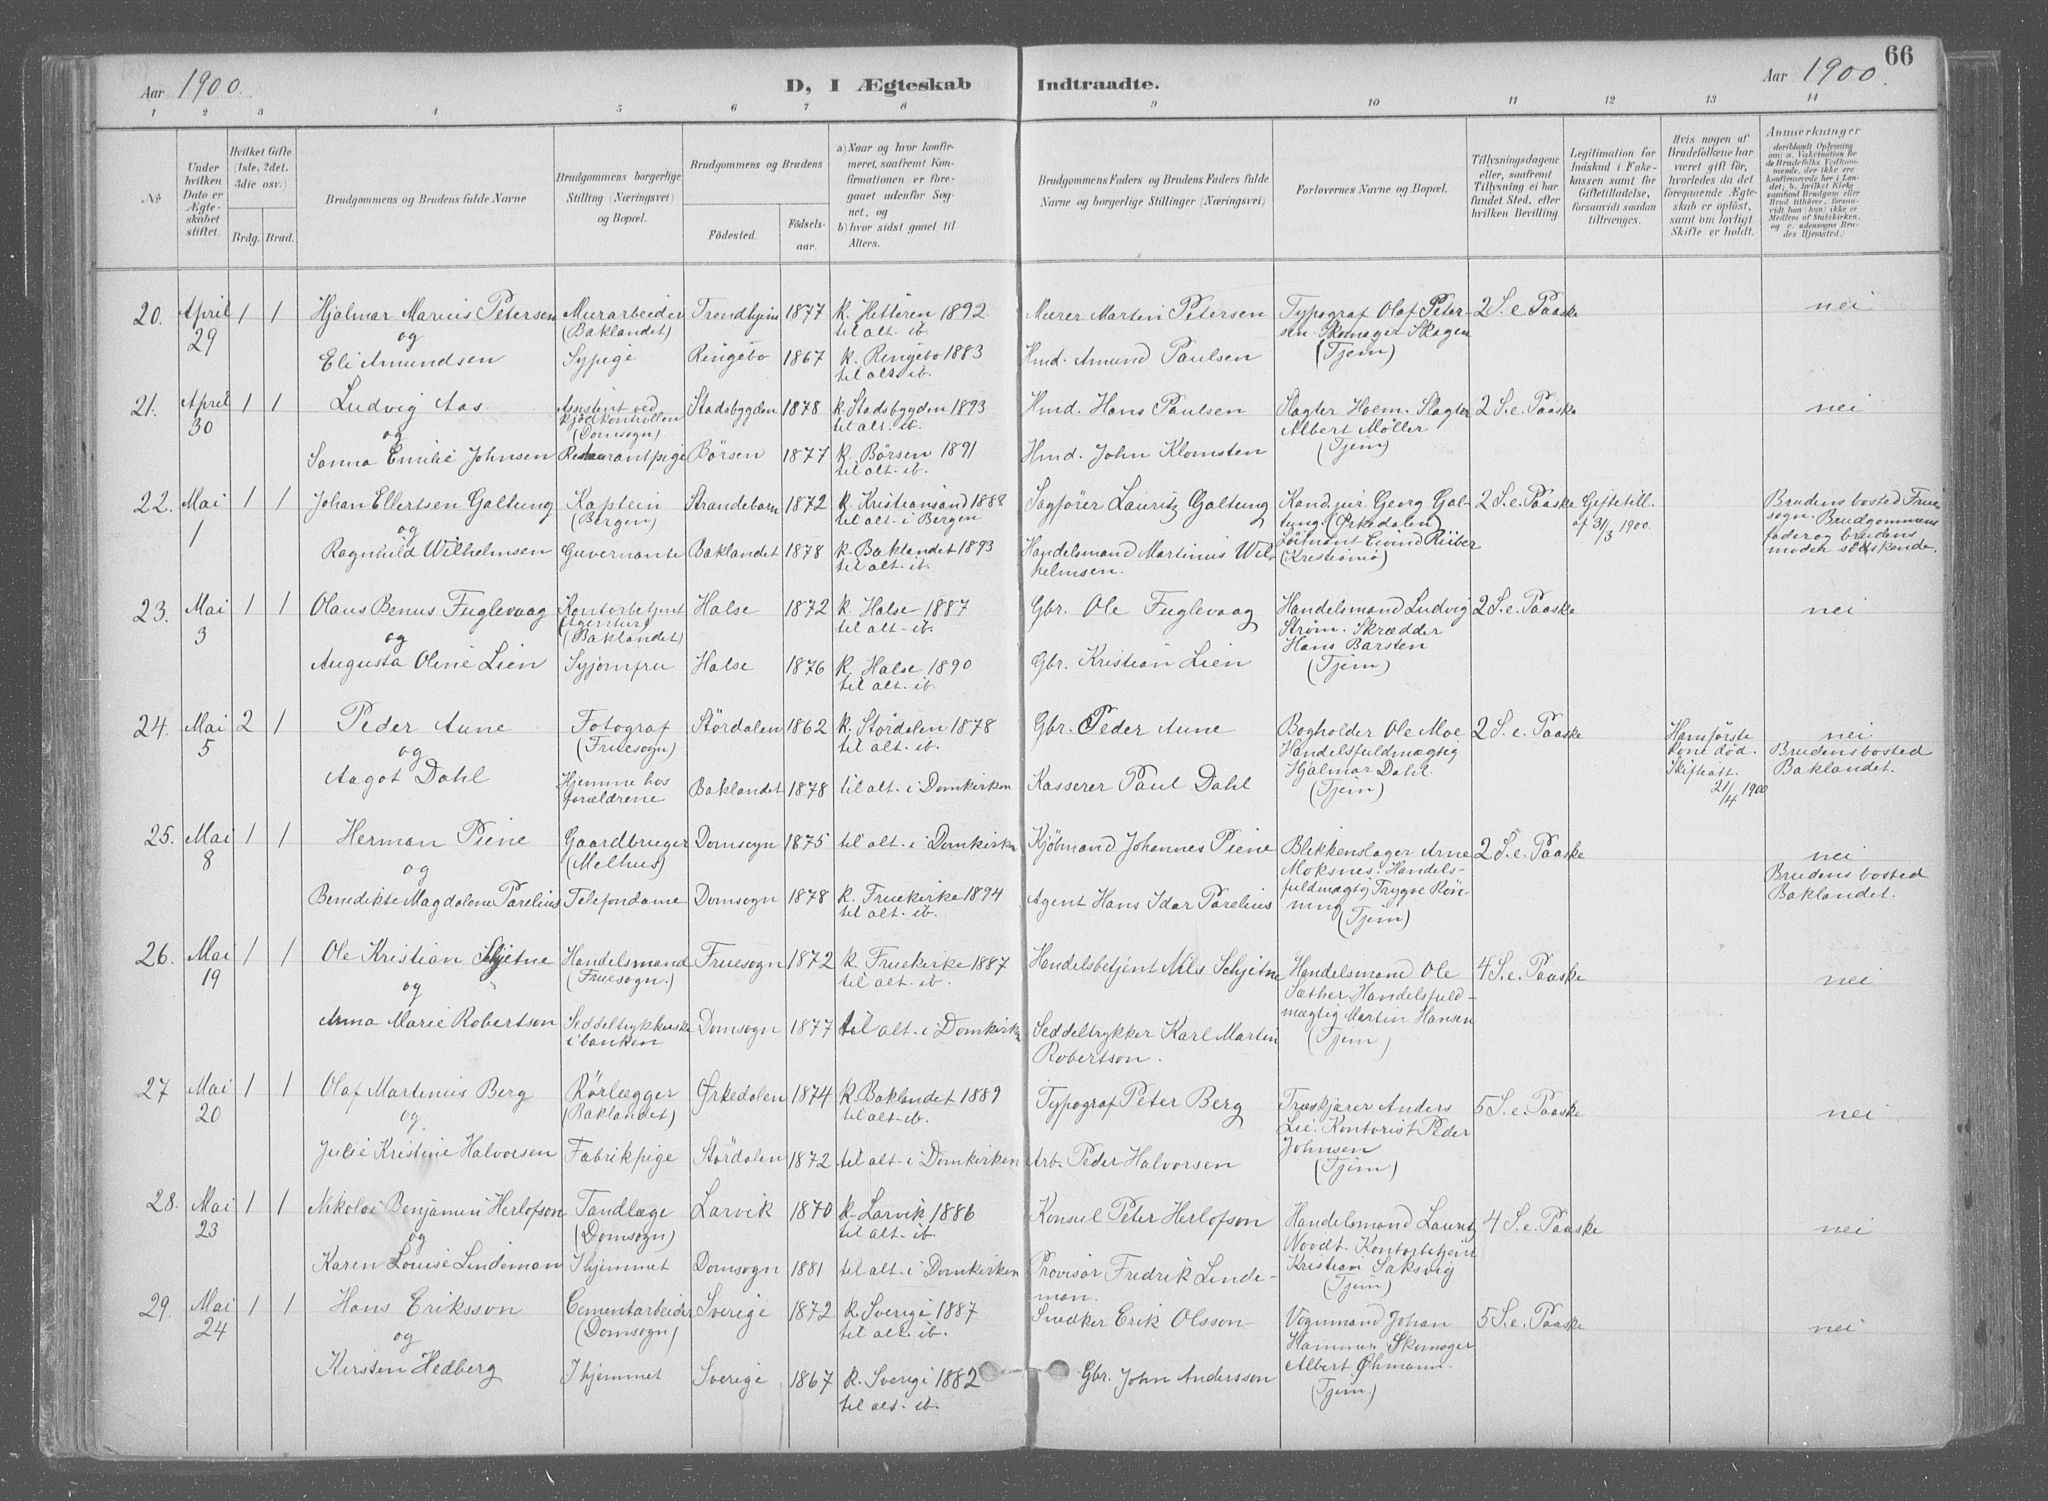 Aar 1900.
D, I Ægteskab Indtraadte.
Aar 1900.
66
1 2 3 4 5 6 7 8 9 10 11 12 13 14
No
Under hvilken Dato er Ægteskabet stiftet.
Hvilket Gifte (1ste, 2det, 3die osv.)
Brdg. Brud.
Brudgommens og Brudens fulde Navne
Brudgommens borgerlige Stilling (Næringsvei) og Bopæl.
Brudgommens og Brudens
Fødested. Fødselsaar.
a) Naar og hvor konfirmeret, saafremt Konfirmationen er foregaaet udenfor Sognet, og
b) hvor sidst gaaet til Alters.
Brudgommens Faders og Brudens Faders fulde Navne og borgerlige Stillinger (Næringsvei)
Forlovernes Navne og Bopæl.
Tillysningsdagene eller, saafremt Tillysning ei har fundet Sted, efter hvilken Bevilling.
Legitimation for Indskud i Enkekassen samt for Giftetilladelse, forsaavidt saadan tiltrænges.
Hvis nogen af Brudefolkene har været gift før, hvorledes da det foregaaende Ægteskab er opløst, samt om lovligt Skifte er holdt.
Anmærkninger (deriblandt Oplysning om: a. Vakcination for de Brudefolks Vedkommende, der ikke ere konfirmerede her i Landet; b. hvilket Kirkesamfund Brudgom eller Brud tilhører, forsaavidt han (hun) ikke er Medlem af Statskirken, og c. udensogns Brudes Hjemsted.)
20. April 29 1 1 Hjalmar Marius Petersen Murarbeider (Baklandet) Trondhjem 1877 k. Hitteren 1892 til alt. ib. Murer Martin Petersen Typograf Olaf Petersen. Skomager Skagen (Tjem) 2 S. e. Paaske nei
og
Eli Amundsen Sypige Ringebo 1867 k. Ringebo 1883 til alt. ib. Hmd. Amund Paulsen
21. April 30 1 1 Ludvig Aas Assistent ved kjødkontrollen (Domsogn) Stadsbygden 1878 k. Stadsbygden 1893 til alt. ib. Hmd. Hans Paulsen Slagter Hoem. Slagter Albert Møller (Tjem) 2 S. e. Paaske nei
og
Sanna Emilie Johnsen Restaurantpige Børsen 1877 k. Børsen 1891 til alt. ib. Hmd. John Klomsten
22. Mai 1 1 1 Johan Ellertsen Galtung Kaptein (Bergen) Strandebarm 1872 k. Kristiansand 1888 til alt. i Bergen Sagfører Lauritz Galtung Kand. jur. Georg Galtung (Ørkedalen) Løitnant Eivind Riiber (Kristiania) 2 S. e. Paaske Giftetill. af 31/3 1900. Brudens bosted Fruesogn. Brudgommens fader og brudens moder søskende.
og
Ragnhild Wilhelmsen Guvernante Baklandet 1878 k. Baklandet 1893 til alt. ib. Handelsmand Martinius Wilhelmsen.
23. Mai 3 1 1 Olaus Benus Fuglevaag Kontorbetjent (Agentur) (Baklandet) Halse 1872 k. Halse 1887 til alt. ib. Gbr. Ole Fuglevaag Handelsmand Ludvig Strøm. Skrædder Hans Barsten (Tjem) 2 S. e. Paaske nei
og
Augusta Oline Lien Syjomfru Halse 1876 k. Halse 1890 til alt. ib. Gbr. Kristian Lien
24. Mai 5 2 1 Peder Aune Fotograf (Fruesogn) Størdalen 1862 k. Størdalen 1878 til alt. ib. Gbr. Peder Aune Bogholder Ole Moe Handelsfuldmægtig Hjalmar Dahl. (Tjem) 2 S. e. Paaske Hans første kone død. Skifteatt. 21/4 1900 nei. Brudens bosted Baklandet.
og
Aagot Dahl Hjemme hos forældrene Baklandet 1878 til alt. i Domkirken Kasserer Paul Dahl
25. Mai 8 1 1 Herman Piene Gaardbruger (Melhus) Domsogn 1875 til alt. i Domkirken Kjøbmand Johannes Piene Blikkenslager Arne Moksnes. Handelsfuldmægtig Trygve Rønning (Tjem) 2 S. e. Paaske nei Brudens bosted Baklandet.
og
Benedikte Magdalene Parelius Telefondame Domsogn 1878 k. Fruekirke 1894 til alt. ib. Agent Hans Idar Parelius
26. Mai 19 1 1 Ole Kristian Schjetne Handelsmand (Fruesogn.) Fruesogn 1872 k. Fruekirke 1887 til alt. ib. Handelsbetjent Nils Schjetne Handelsmand Ole Sæther. Handelsfuldmægtig Martin Hansen (Tjem) 4 S. e. Paaske nei
og
Anna Marie Robertson Seddeltrykkerske i banken Domsogn 1877 til alt. i Domkirken Seddeltrykker Karl Martin Robertson.
27 Mai 20 1 1 Olaf Martinius Berg Rørlægger (Baklandet) Ørkedalen 1874 k. Baklandet 1889 til alt. ib. Typograf Peter Berg Træskjærer Anders Lie. Kontorist Peder Johnsen (Tjem) 5 S. e. Paaske nei
og
Julie Kristine Halvorsen Fabrikpige Størdalen 1872 til alt. i Domkirken Arb. Peder Halvorsen
28. Mai 23 1 1 Nikolai Benjamin Herlofson Tandlæge (Domsogn) Larvik 1870 k. Larvik 1886 til alt. ib. Konsul Peter Herlofson Handelsmand Lauritz Noodt. Kontorbetjent Kristian Saksvig (Tjem) 4 S. e. Paaske nei
og
Karen Louise Lindeman I hjemmet Domsogn 1881 til alt. i Domkirken Provisor Fredrik Lindeman.
29. Mai 24 1 1 Hans Eriksson Cementarbeider (Domsogn) Sverige 1872 k. Sverige 1887 til alt. ib. Snedker Erik Olsson Vognmand Johan Hammer. Skomager Albert Øhmann. (Tjem.) 5 S. e. Paaske nei
og
Kersten Hedberg I hjemmet Sverige 1867 k. Sverige 1882 til alt. ib. Gbr. John Andersson